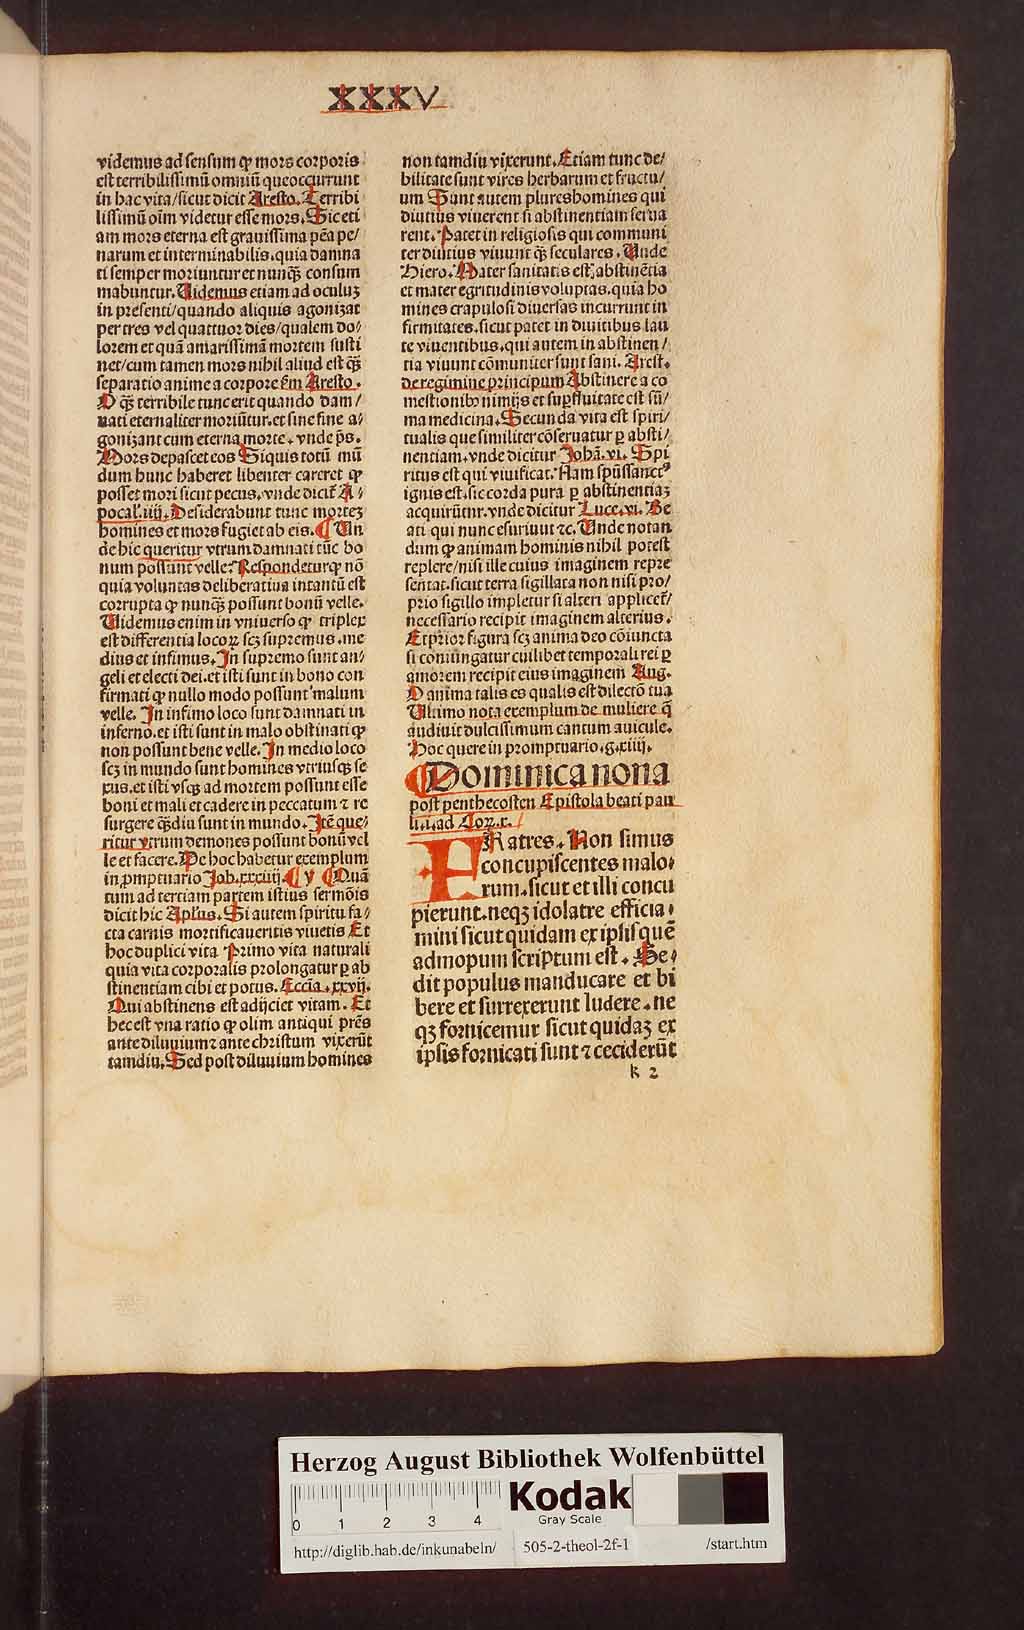 XXXV
videmus ad sensum ꝙ mors corporis
est terribilissimū omniū que occurrunt
in hac vita/sicut dicit Aresto. Terribi
lissimū oīm videtur esse mors. Sic eti
am mors eterna est grauissima pēa pe/
narum et interminabilis. quia damna
ti semper moriuntur et nunqꝫ consum
mabuntur. Uidemus etiam ad oculuꝫ
in presenti/quando aliquis agonizat
per tres vel quattuor dies/qualem do/
lorem et quā amarissimā mortem susti
net/cum tamen mors nihil aliud est qꝫ
separatio anime a corpore km̄ Aresto.
O qꝫ terribile tunc erit quando dam/
nati eternaliter moriūtur. et sine fine a/
gonizant cum eterna morte. vnde p̄s.
Mors depascet eos Siquis totū mū
dum hunc haberet libenter careret ꝙ
posset mori sicut pecus. vnde dicit̄ A/
pocal. iiij. Desiderabunt tunc morteꝫ
homines et mors fugiet ab eis. ¶ Un
de hic queritur vtrum damnati tūc bo
num possunt velle? Respondetur ꝙ nō
quia voluntas deliberatiua intantū est
corrupta ꝙ nunqꝫ possunt bonū velle.
Uidemus enim in vniuerso ꝙ triplex
est differentia locoꝝ scꝫ supremus. me
dius et infimus. In supremo sunt an/
geli et electi dei. et isti sunt in bono con
firmati ꝙ nullo modo possunt malum
velle. In infimo loco sunt damnati in
inferno. et isti sunt in malo obstinati ꝙ
non possunt bene velle. In medio loco
scꝫ in mundo sunt homines vtriusqꝫ se
xus. et isti vsqꝫ ad mortem possunt esse
boni et mali et cadere in peccatum ⁊ re
surgere qꝫdiu sunt in mundo. Itē que/
ritur vtrum demones possunt bonū vel
le et facere. De hoc habetur exemplum
in ꝓmptuario Joh. xxxiiij. ¶ V ¶ Quā
tum ad tertiam partem istius sermōis
dicit hic Apl'us. Si autem spiritu fa/
cta carnis mortificaueritis viuetis Et
hoc duplici vita Primo vita naturali
quia vita corporalis prolongatur ꝑ ab
stinentiam cibi et potus. Eccīa. xxvij.
Qui abstinens est adijciet vitam. Et
hec est vna ratio ꝙ olim antiqui prēs
ante diluuium ⁊ ante christum vixerūt
tamdiu. Sed post diluuium homines
non tamdiu vixerunt. Etiam tunc de/
bilitate sunt vires herbarum et fructu/
um Sunt autem plures homines qui
diutius viuerent si abstinentiam serua
rent. Patet in religiosis qui communi
ter diutius viuunt qꝫ seculares. Unde
Hiero. Mater sanitatis est abstinētia
et mater egritudinis voluptas. quia ho
mines crapulosi diuersas incurrunt in
firmitates. sicut patet in diuitibus lau
te viuentibus. qui autem in abstinen/
tia viuunt cōmuniter sunt sani. Arest.
de regimine principum Abstinere a co
mestionibꝰ nimijs et suꝑfluitate est sū/
ma medicina. Secunda vita est spiri/
tualis que similiter cōseruatur ꝑ absti/
nentiam. vnde dicitur Johā. vi. Spi
ritus est qui viuificat. Nam spūssanctꝰ
ignis est. sic corda pura ꝑ abstinentiaꝫ
acquirūtur. vnde dicitur Luce. vi. Be
ati qui nunc esuriunt ⁊c. Unde notan
dum ꝙ animam hominis nihil potest
replere/nisi ille cuius imaginem repre
sentat. sicut terra sigillata non nisi pro/
prio sigillo impletur si alteri applicet̄/
necessario recipit imaginem alterius.
Et prior figura scꝫ anima deo cōiuncta
si coniungatur cuilibet temporali rei ꝑ
amorem recipit eius imaginem Aug.
O anima talis es qualis est dilectō tua
Ultimo nota exemplum de muliere q̄
audiuit dulcissimum cantum auicule.
Hoc quere in promptuario. g. xiiij.
¶ Dominica nona
post penthecosten Epistola beati pau
li. i. ad Coꝝ. x.
FRatres. Non simus
concupiscentes malo/
rum. sicut et illi concu
pierunt. neqꝫ idolatre efficia/
mini sicut quidam ex ipsis quē
admopum scriptum est. Se/
dit populus manducare et bi
bere et surrexerunt ludere. ne
qꝫ fornicemur sicut quidaꝫ ex
ipsis fornicati sunt ⁊ ceciderūt
k 2
Herzog August Bibliothek Wolfenbüttel
0 1 2 3 4
Kodak
Gray Scale
http://diglib.hab.de/inkunabeln/ 505-2-theol-2f-1 /start.htm